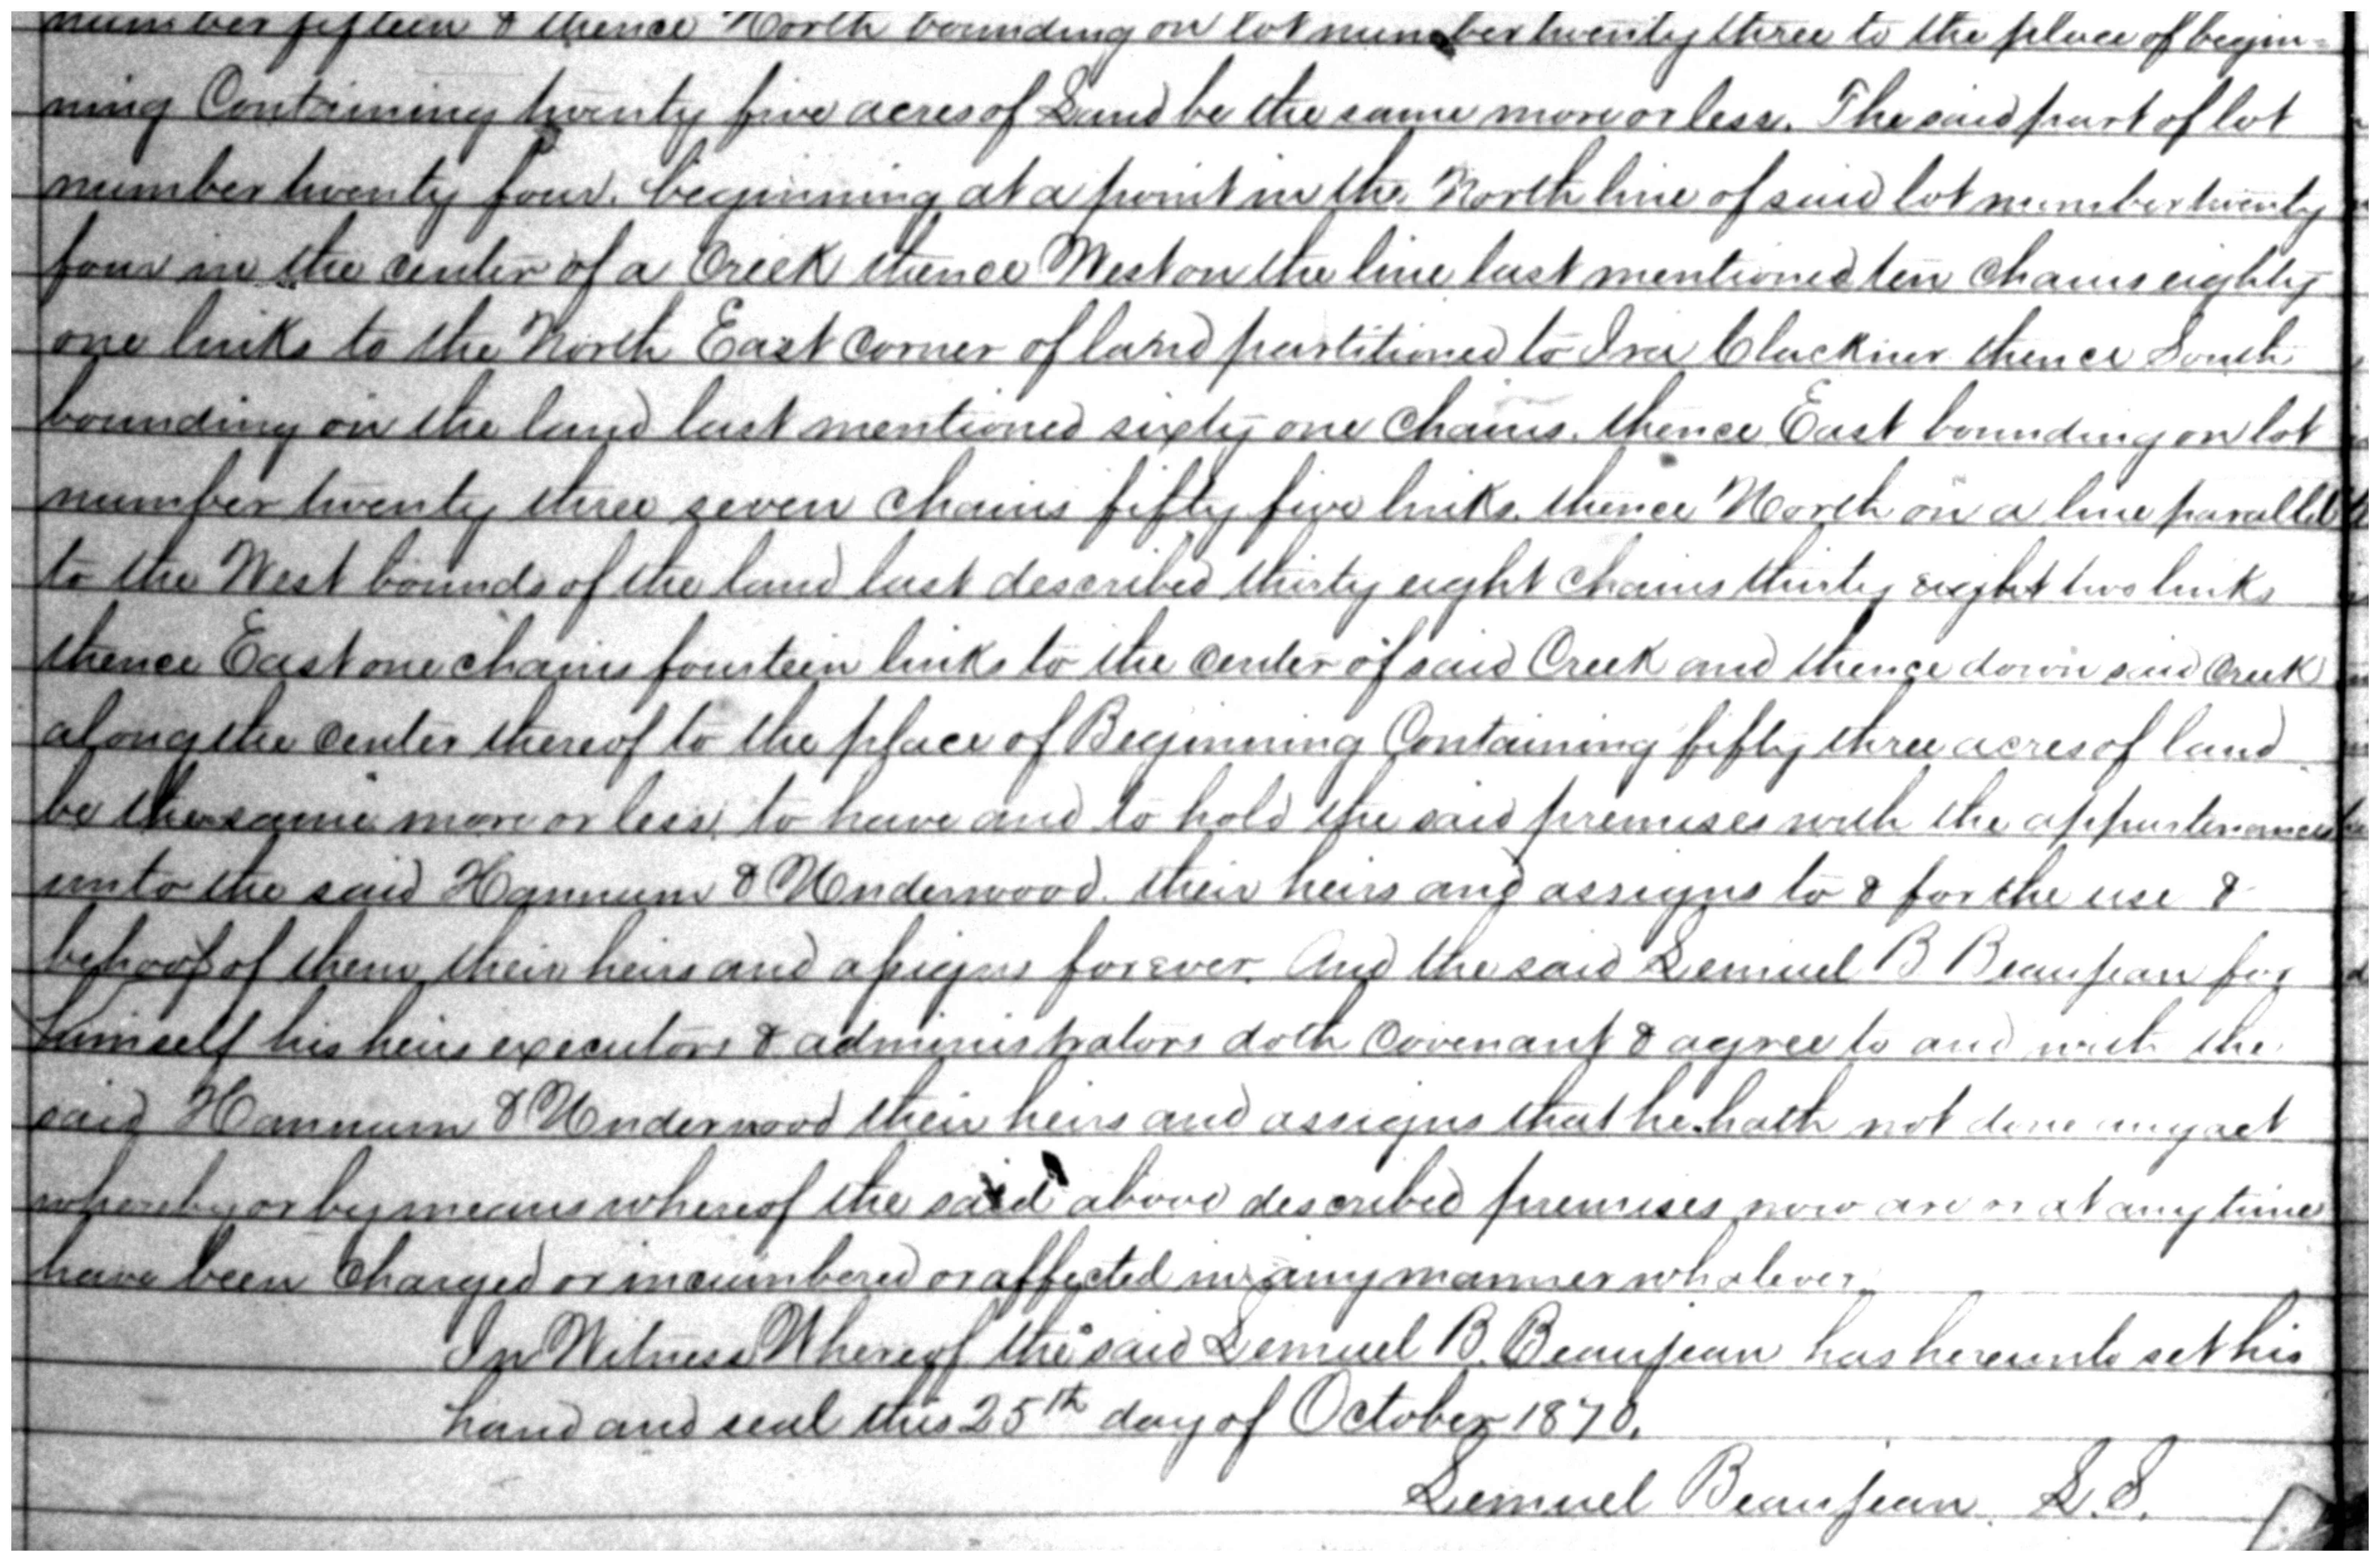 number fifteen & thence North bounding on lot number twenty three to the place of begin=
ning Containing twenty five acres of Land be the same more or less. The said part of lot
number twenty four. beginning at a point in the North line of said lot number twenty
four in the center of a Creek thence West on the line last mentioned ten Chains eighty
one links to the North East Corner of land partitioned to Ira Clackner thence South
bounding on the land last mentioned sixty one Chains. thence East bounding on lot
number twenty three seven Chains fifty five links. thence North on a line parallel
to the West bounds of the land last described thirty eight Chains thirty eight two links
thence East one chains fourteen links to the center of said Creek and thence down said Creek
along the center thereof to the place of Beginning Containing fifty three acres of land
be the same more or less, to have and to hold the said premises with the appurtenances
unto the said Hannum & Underwood. their heirs and assigns to & for the use &
behoof of them their heirs and assigns forever. And the said Lemuel B Beaujean for
himself his heirs executors & administrators doth Covenant & agree to and with the
said Hannum & Underwood their heirs and assigns that he hath not done any act
whereby or by means whereof the said above described premises now are or at any time
have been Charged or incumbered or affected in any manner whatever.
In Witness Whereof the said Lemuel B. Beaujean has hereunto set his
hand and seal this 25th day of October 1870.
Lemuel Beaujean. L.S.